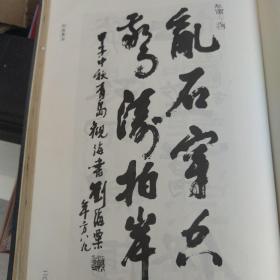 亂石穿空
驚濤拍岸
甲子中秋青島觀海書劉海粟
年方八九